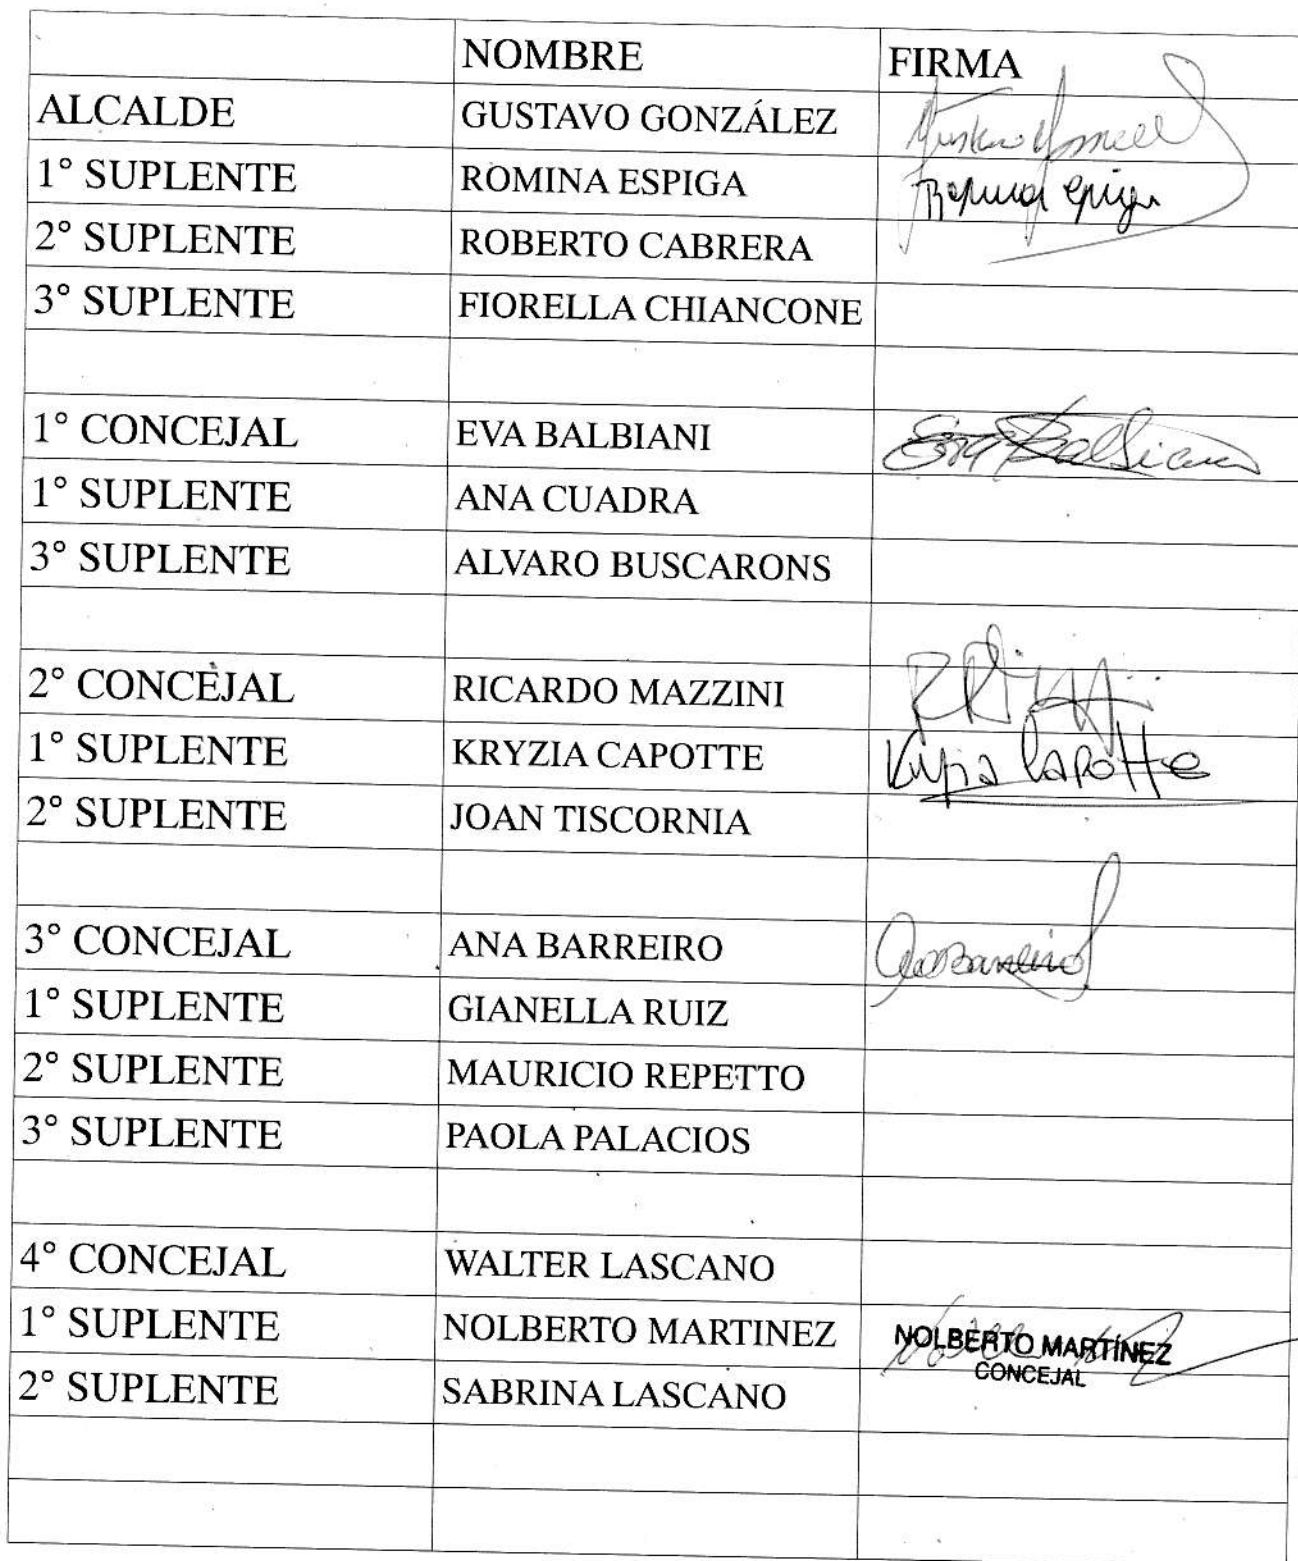 NOMBRE FIRMA
ALCALDE GUSTAVO GONZÁLEZ
1° SUPLENTE ROMINA ESPIGA Romina Espiga
2° SUPLENTE ROBERTO CABRERA
3° SUPLENTE FIORELLA CHIANCONE
1° CONCEJAL EVA BALBIANI Eva Balbiani
1° SUPLENTE ANA CUADRA
3° SUPLENTE ALVARO BUSCARONS
2° CONCEJAL RICARDO MAZZINI
1° SUPLENTE KRYZIA CAPOTTE Kryzia Capotte
2° SUPLENTE JOAN TISCORNIA
3° CONCEJAL ANA BARREIRO Ana Barreiro
1° SUPLENTE GIANELLA RUIZ
2° SUPLENTE MAURICIO REPETTO
3° SUPLENTE PAOLA PALACIOS
4° CONCEJAL WALTER LASCANO
1° SUPLENTE NOLBERTO MARTINEZ NOLBERTO MARTÍNEZ
CONCEJAL
2° SUPLENTE SABRINA LASCANO